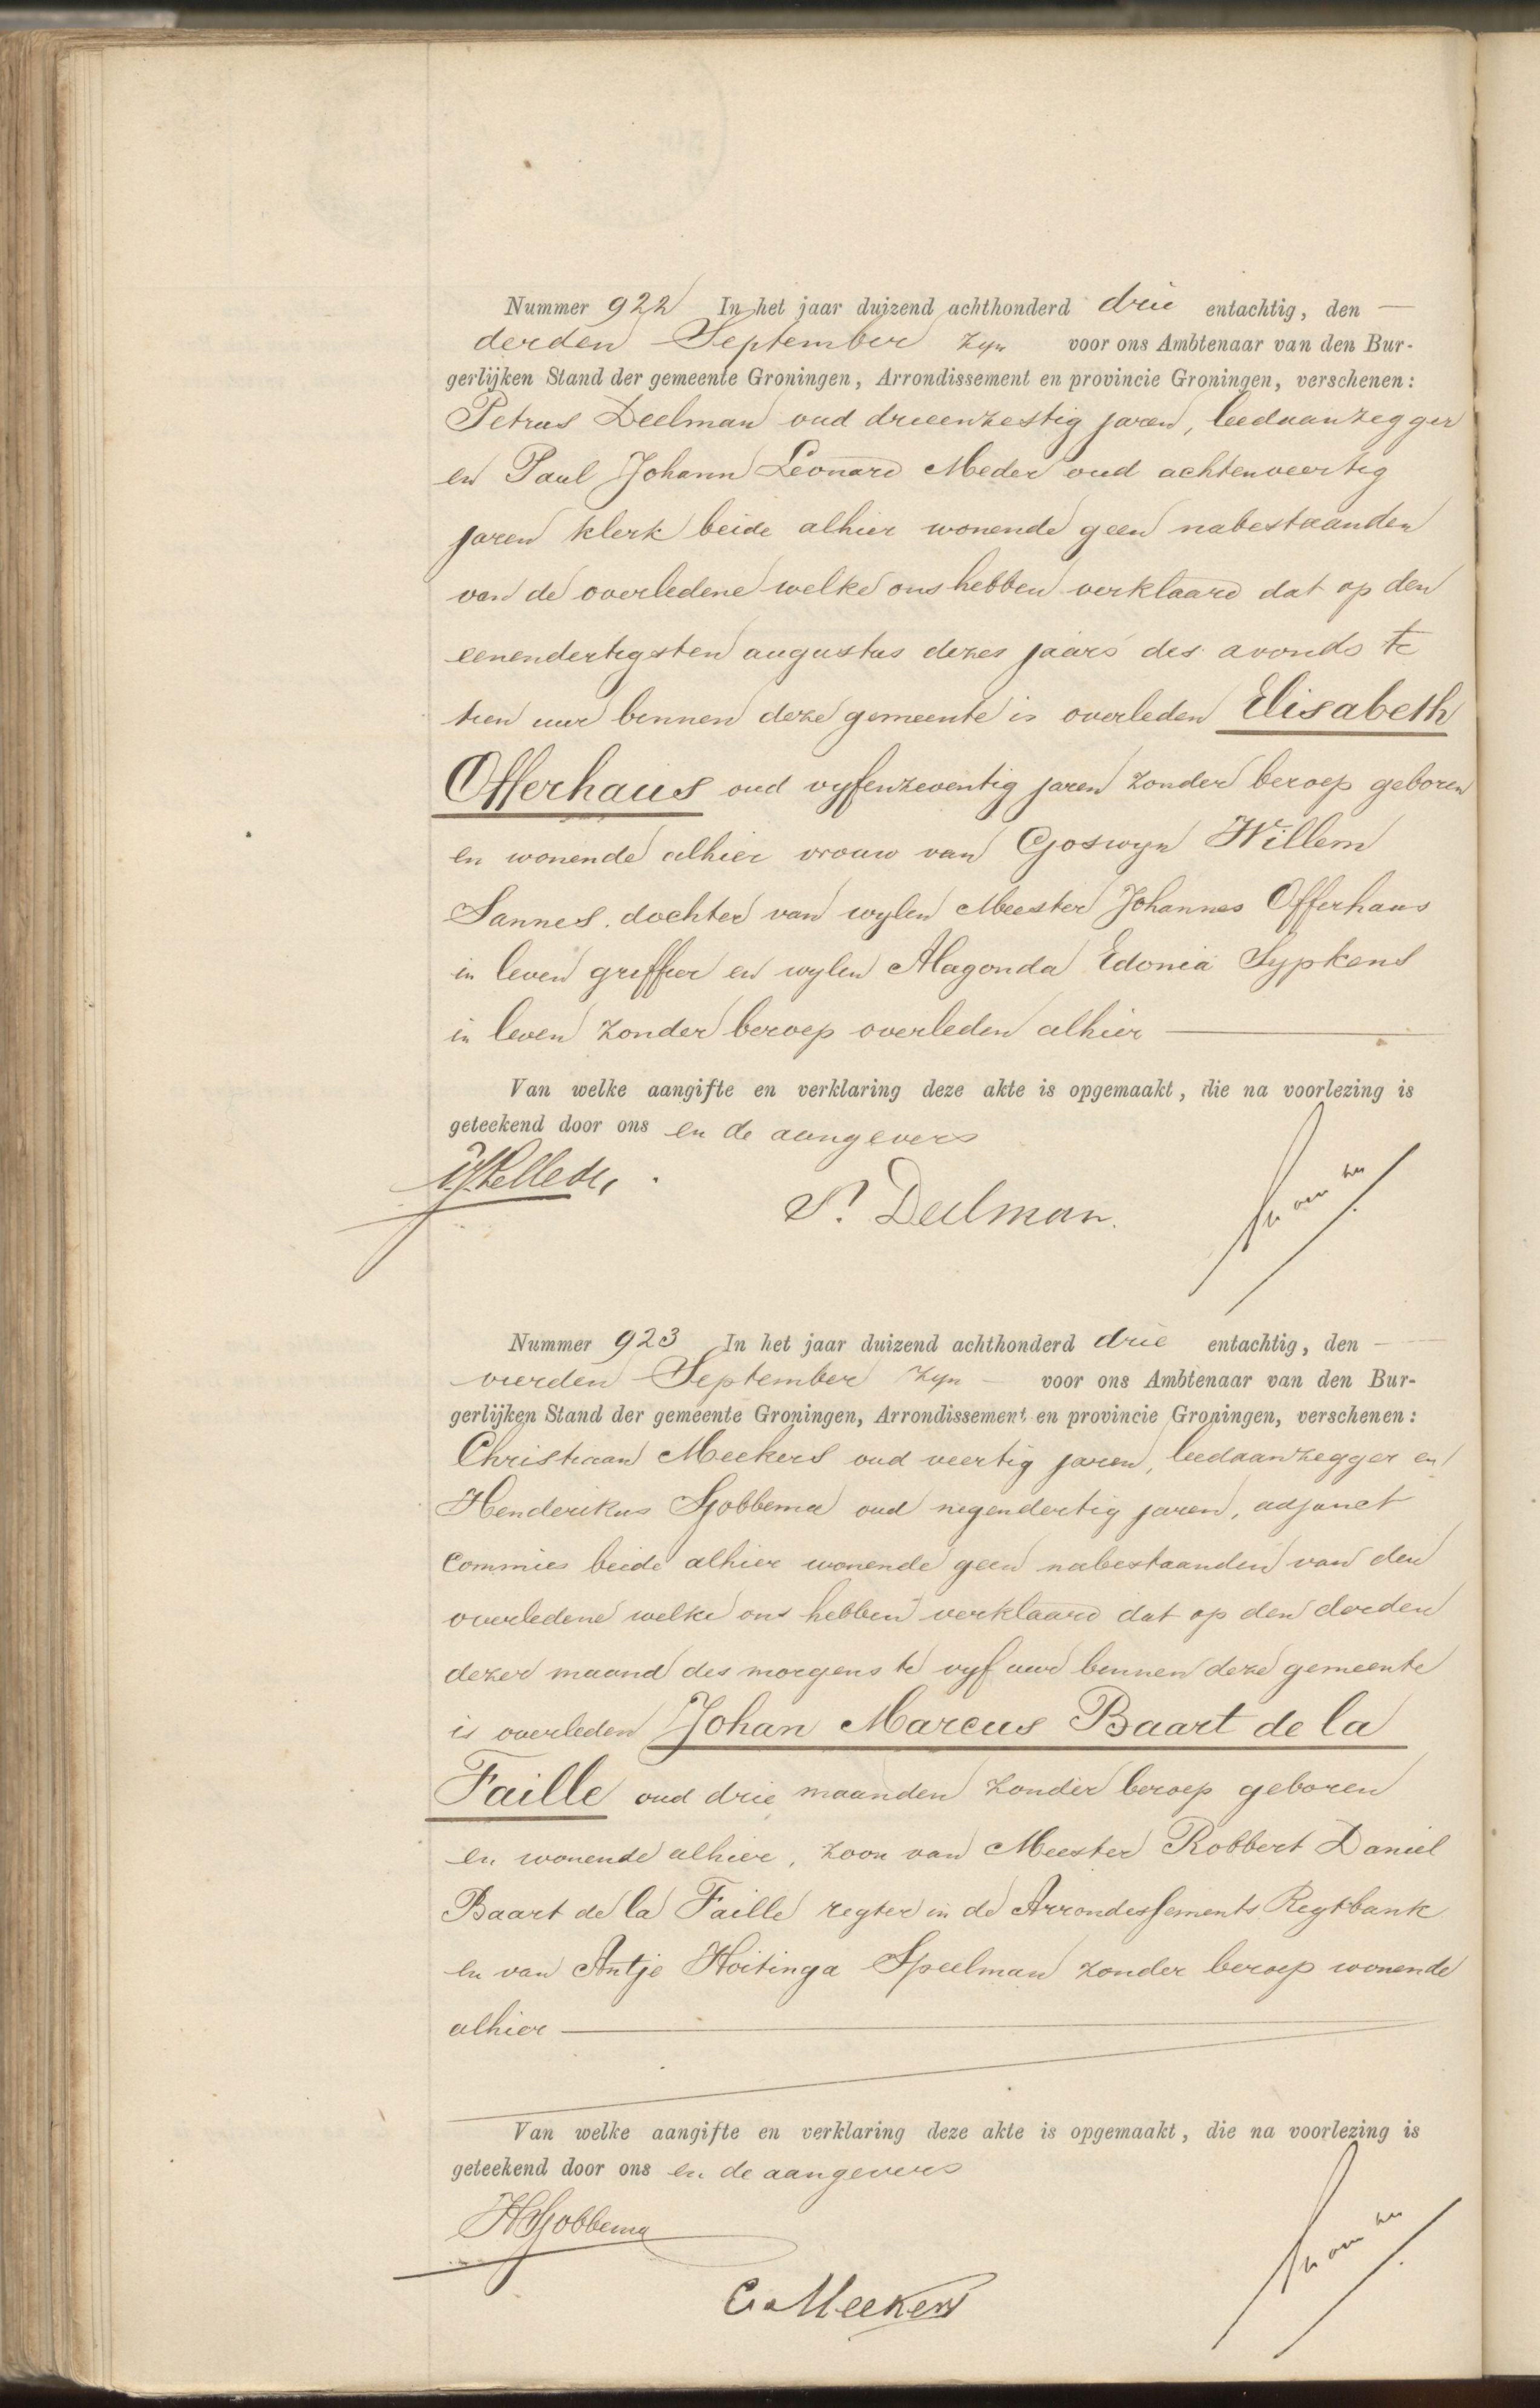 Nummer 922 In het jaar duizend achthonderd drie entachtig, den —
derden September zyn voor ons Ambtenaar van den Bur-
gerlijken Stand der gemeente Groningen, Arrondissement en provincie Groningen, verschenen:
Petrus Deelman oud drieenzestig jaren, leedaanzegger
en Paul Johann Leonard Meder oud achtenveertig
jaren klerk beide alhier wonende geen nabestaanden
van de overledene welke ons hebben verklaard dat op den
eenendertigsten augustus dezes jaars des avonds te
tien uur binnen deze gemeente is overleden Elisabeth
Offerhaus oud vyfenzeventig jaren zonder beroep geboren
en wonende alhier vrouw van Goswyn Willem
Sannes, dochter van wylen Meester Johannes Offerhaus
in leven griffier en wylen Alagonda Edonia Sypkens
in leven zonder beroep overleden alhier —
Van welke aangifte en verklaring deze akte is opgemaakt, die na voorlezing is
geteekend door ons en de aangevers
P. Deelman.
Nummer 923 In het jaar duizend achthonderd drie entachtig, den —
vierden September zyn — voor ons Ambtenaar van den Bur-
gerlijken Stand der gemeente Groningen, Arrondissement en provincie Groningen, verschenen:
Christiaan Meekers oud veertig jaren, leedaanzegger en
Henderikus Sjobbema oud negendertig jaren, adjunct
commies beide alhier wonende geen nabestaanden van den
overledene welke ons hebben verklaard dat op den derden
dezer maand des morgens te vyf uur binnen deze gemeente
is overleden Johan Marcus Baart de la
Faille oud drie maanden zonder beroep geboren
en wonende alhier, zoon van Meester Robbert Daniel
Baart de la Faille regter in de Arrondissements Regtbank
en van Antje Hoitinga Speelman zonder beroep wonende
alhier —
Van welke aangifte en verklaring deze akte is opgemaakt, die na voorlezing is
geteekend door ons en de aangevers
HSjobbema
C. Meekers